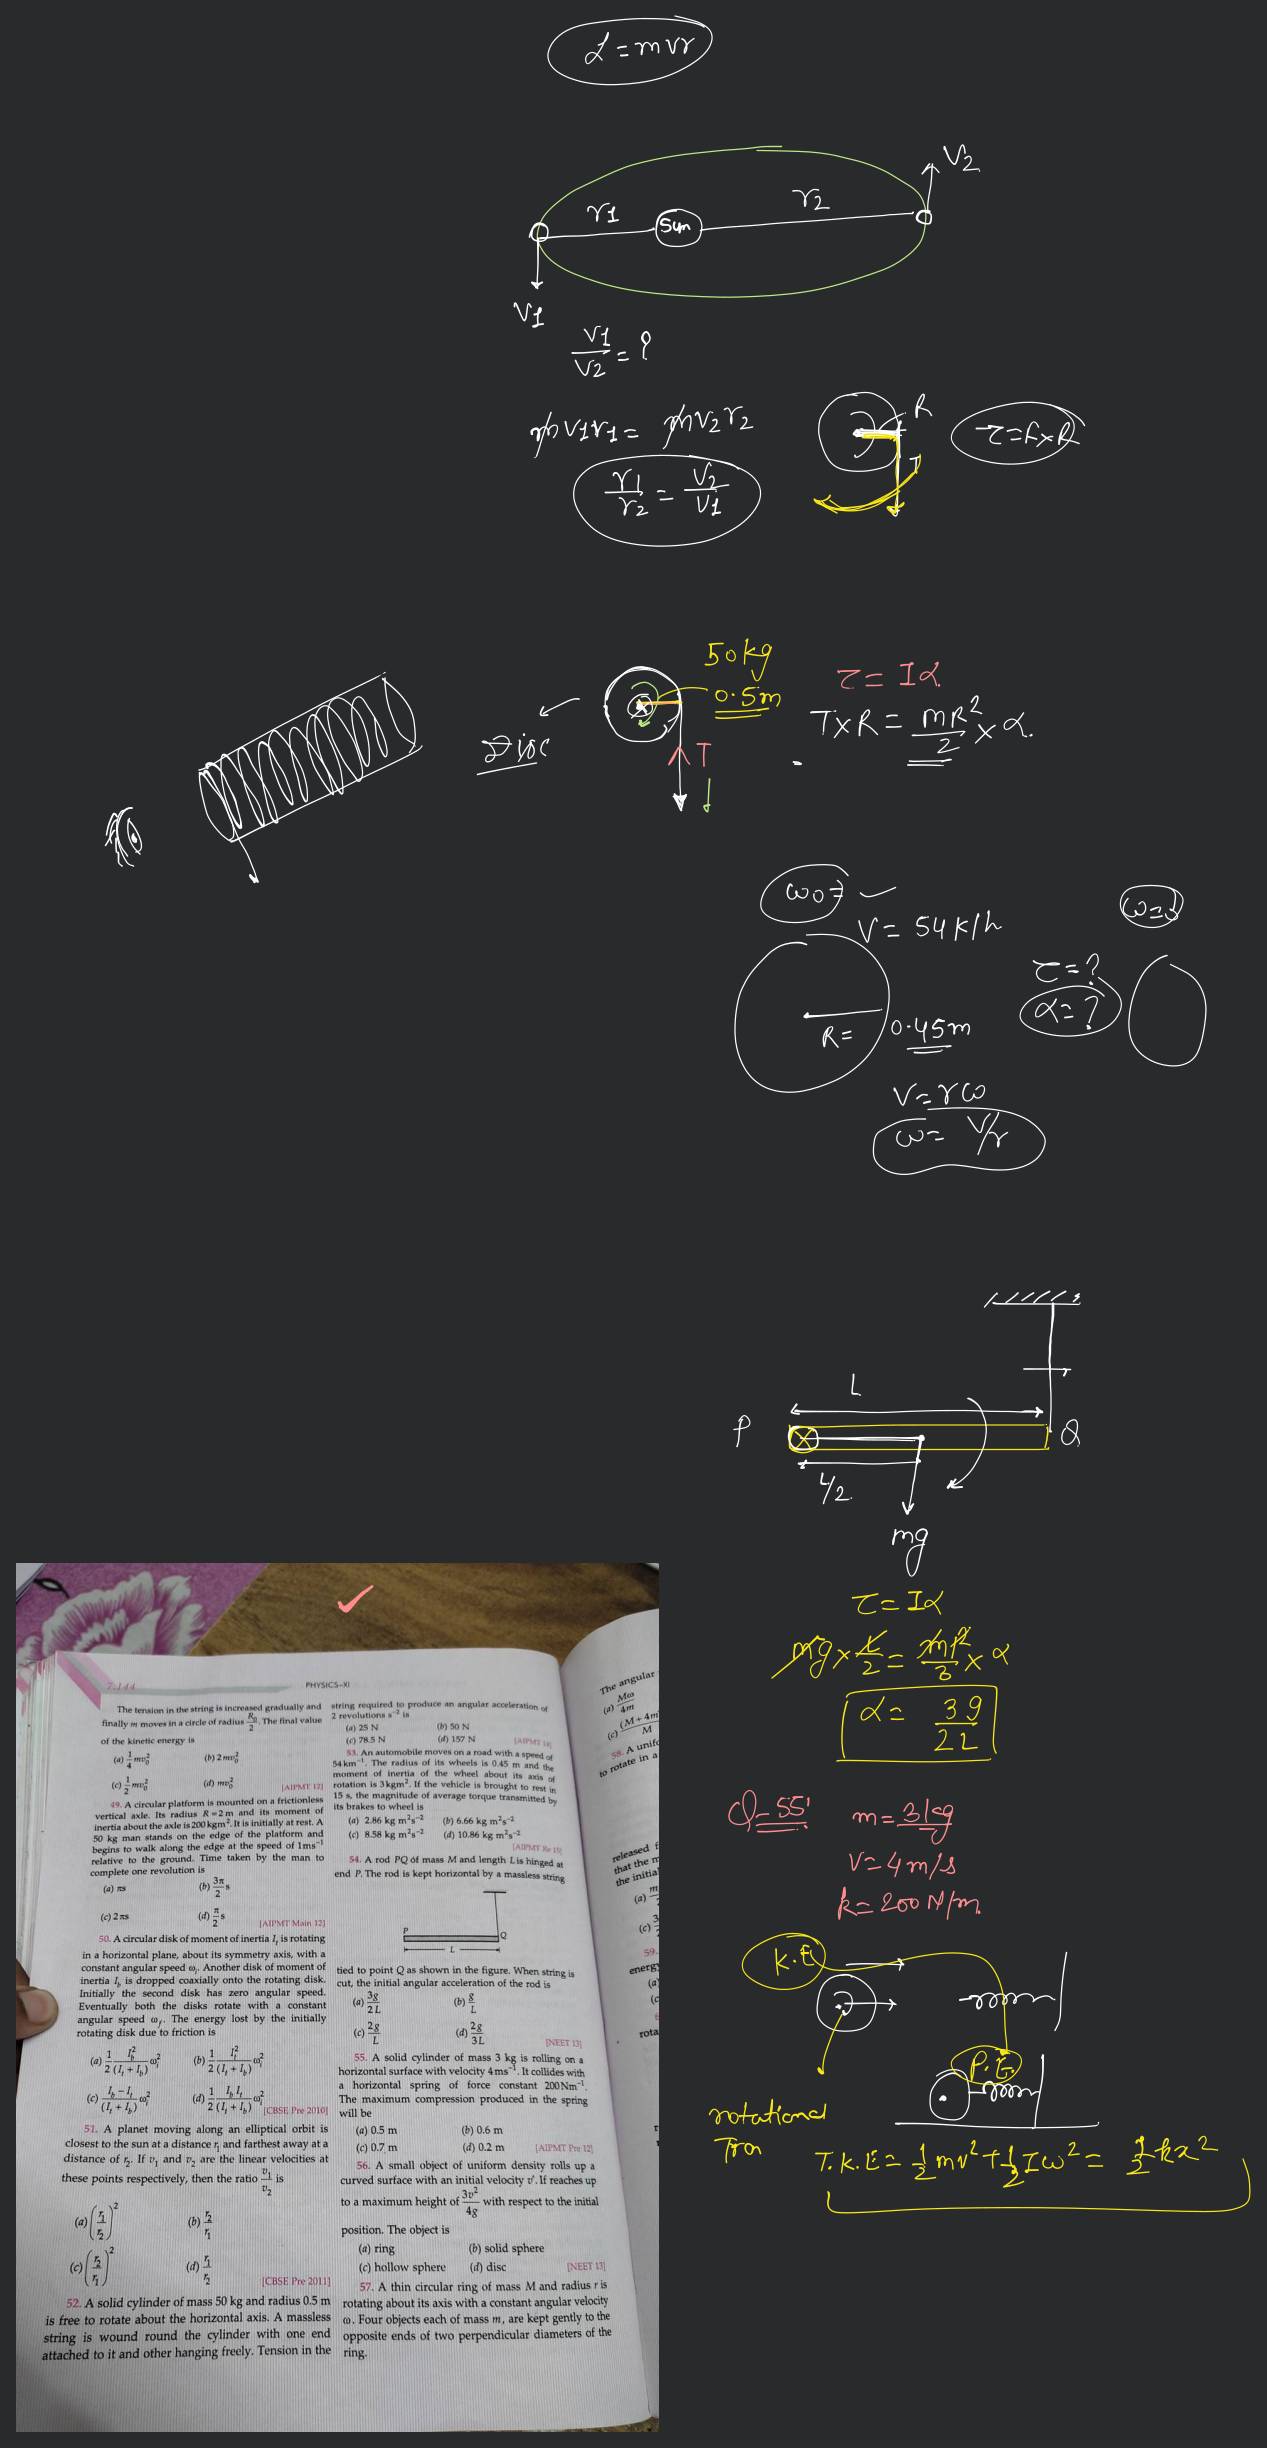 L = mvr
V2
r1
Sun
r2
V1
V1/V2 = ?
mv1r1 = mv2r2
R
τ = F×R
r1/r2 = V2/V1
T
50kg
0.5m
τ = Iα
T×R = mR²/2 × α
Disc
T
ω0 =
V = 54 k/h
ω=0
τ = ?
α = ?
R = 0.45m
V = rω
ω = V/r
L
P
Q
L/2
mg
τ = Iα
mg × L/2 = mL²/3 × α
α = 3g/2L
Q-55'
m = 3kg
V = 4 m/s
k = 200 N/m
K.E
P.E.
rotational
Tran
T.K.E = 1/2 mv² + 1/2 Iω² = 1/2 kx²
7.144
PHYSICS-XI
The tension in the string is increased gradually and
finally m moves in a circle of radius R₀/2. The final value
of the kinetic energy is
(a) 1/4 mv₀² (b) 2 mv₀²
(c) 1/2 mv₀² (d) mv₀² [AIPMT 12]
49. A circular platform is mounted on a frictionless
vertical axle. Its radius R = 2 m and its moment of
inertia about the axle is 200 kgm². It is initially at rest. A
50 kg man stands on the edge of the platform and
begins to walk along the edge at the speed of 1ms⁻¹
relative to the ground. Time taken by the man to
complete one revolution is
(a) πs (b) 3π/2 s
(c) 2πs (d) π/2 s [AIPMT Main 12]
50. A circular disk of moment of inertia Iₜ is rotating
in a horizontal plane, about its symmetry axis, with a
constant angular speed ωᵢ. Another disk of moment of
inertia I_b is dropped coaxially onto the rotating disk.
Initially the second disk has zero angular speed.
Eventually both the disks rotate with a constant
angular speed ω_f. The energy lost by the initially
rotating disk due to friction is
(a) 1/2 I_b²/(Iₜ + I_b) ωᵢ² (b) 1/2 Iₜ²/(Iₜ + I_b) ωᵢ²
(c) (I_b − Iₜ)/(Iₜ + I_b) ωᵢ² (d) 1/2 I_b Iₜ/(Iₜ + I_b) ωᵢ² [CBSE Pre 2010]
51. A planet moving along an elliptical orbit is
closest to the sun at a distance r₁ and farthest away at a
distance of r₂. If v₁ and v₂ are the linear velocities at
these points respectively, then the ratio v₁/v₂ is
(a) (r₁/r₂)² (b) r₂/r₁
(c) (r₂/r₁)² (d) r₁/r₂ [CBSE Pre 2011]
52. A solid cylinder of mass 50 kg and radius 0.5 m
is free to rotate about the horizontal axis. A massless
string is wound round the cylinder with one end
attached to it and other hanging freely. Tension in the
string required to produce an angular acceleration of
2 revolutions s⁻² is
(a) 25 N (b) 50 N
(c) 78.5 N (d) 157 N [AIPMT 14]
53. An automobile moves on a road with a speed of
54 km⁻¹. The radius of its wheels is 0.45 m and the
moment of inertia of the wheel about its axis of
rotation is 3 kgm². If the vehicle is brought to rest in
15 s, the magnitude of average torque transmitted by
its brakes to wheel is
(a) 2.86 kg m²s⁻² (b) 6.66 kg m²s⁻²
(c) 8.58 kg m²s⁻² (d) 10.86 kg m²s⁻²
[AIPMT Re 15]
54. A rod PQ of mass M and length L is hinged at
end P. The rod is kept horizontal by a massless string
P
Q
L
tied to point Q as shown in the figure. When string is
cut, the initial angular acceleration of the rod is
(a) 3g/2L (b) g/L
(c) 2g/L (d) 2g/3L [NEET 13]
55. A solid cylinder of mass 3 kg is rolling on a
horizontal surface with velocity 4 ms⁻¹. It collides with
a horizontal spring of force constant 200 Nm⁻¹.
The maximum compression produced in the spring
will be
(a) 0.5 m (b) 0.6 m
(c) 0.7 m (d) 0.2 m [AIPMT Pre 12]
56. A small object of uniform density rolls up a
curved surface with an initial velocity v'. If reaches up
to a maximum height of 3v²/4g with respect to the initial
position. The object is
(a) ring (b) solid sphere
(c) hollow sphere (d) disc [NEET 13]
57. A thin circular ring of mass M and radius r is
rotating about its axis with a constant angular velocity
ω. Four objects each of mass m, are kept gently to the
opposite ends of two perpendicular diameters of the
ring.
The angular
(a) Mω/4m
(c) (M + 4m)/M
58. A unif
to rotate in a
released f
that the m
the initia
(a)
(c)
59.
energy
(a)
(c)
rota